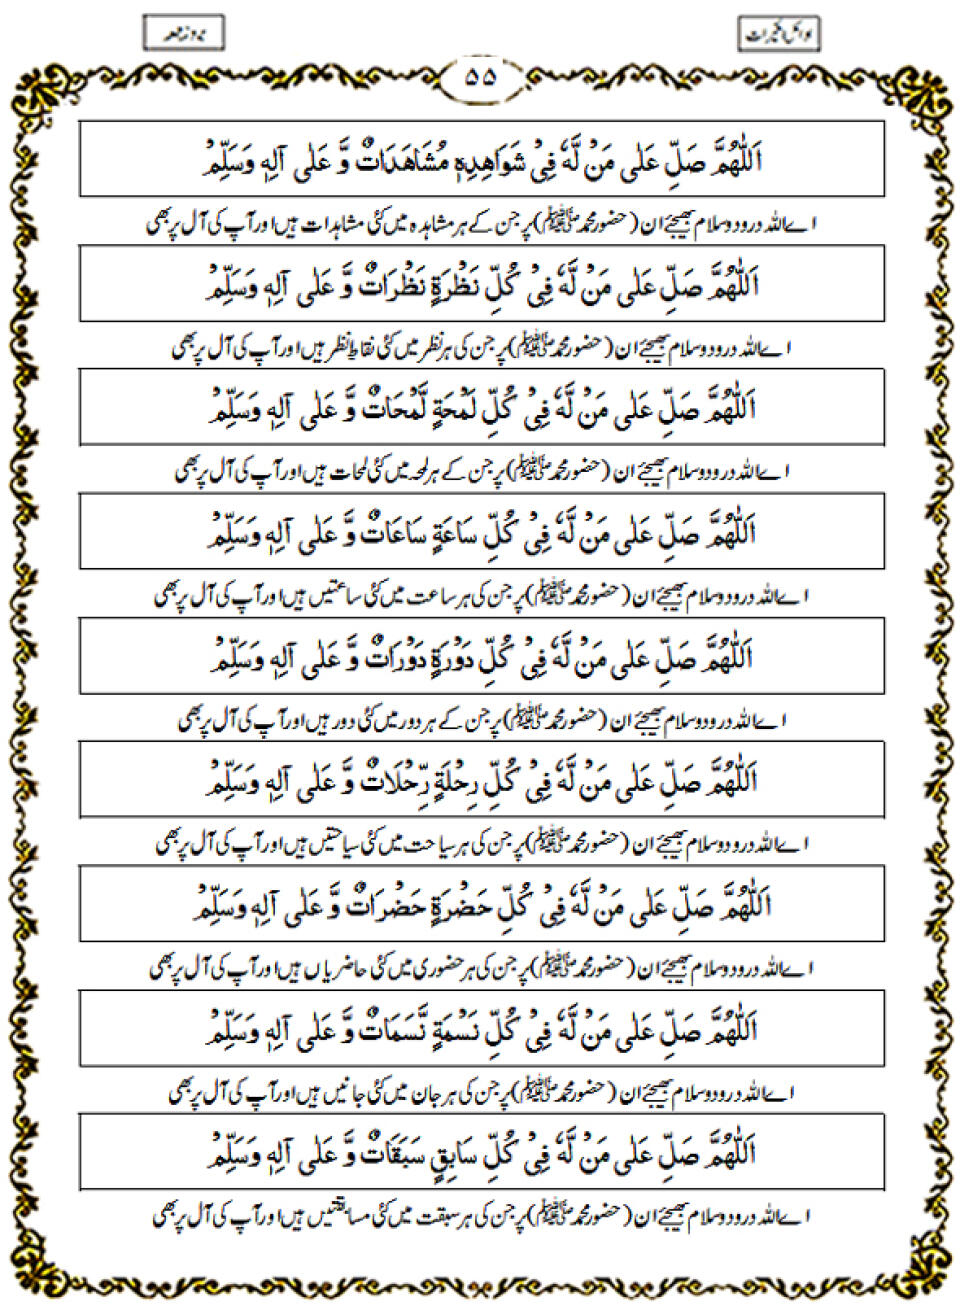 ۵۵
اَللّٰهُمَّ صَلِّ عَلٰى مَنْ لَّهٗ فِىْ شَوَاهِدِهٖ مُشَاهَدَاتٌ وَّ عَلٰى آلِهٖ وَسَلِّمْ
اے اللہ درود و سلام بھیجئے ان (حضور محمد ﷺ) پر جن کے ہر مشاہدہ میں کئی مشاہدات ہیں اور آپ کی آل پر بھی
اَللّٰهُمَّ صَلِّ عَلٰى مَنْ لَّهٗ فِىْ كُلِّ نَظْرَةٍ نَظْرَاتٌ وَّ عَلٰى آلِهٖ وَسَلِّمْ
اے اللہ درود و سلام بھیجئے ان (حضور محمد ﷺ) پر جن کی ہر نظر میں کئی نقاطِ نظر ہیں اور آپ کی آل پر بھی
اَللّٰهُمَّ صَلِّ عَلٰى مَنْ لَّهٗ فِىْ كُلِّ لَمْحَةٍ لَّمْحَاتٌ وَّ عَلٰى آلِهٖ وَسَلِّمْ
اے اللہ درود و سلام بھیجئے ان (حضور محمد ﷺ) پر جن کے ہر لمحہ میں کئی لمحات ہیں اور آپ کی آل پر بھی
اَللّٰهُمَّ صَلِّ عَلٰى مَنْ لَّهٗ فِىْ كُلِّ سَاعَةٍ سَاعَاتٌ وَّ عَلٰى آلِهٖ وَسَلِّمْ
اے اللہ درود و سلام بھیجئے ان (حضور محمد ﷺ) پر جن کی ہر ساعت میں کئی ساعتیں ہیں اور آپ کی آل پر بھی
اَللّٰهُمَّ صَلِّ عَلٰى مَنْ لَّهٗ فِىْ كُلِّ دَوْرَةٍ دَوْرَاتٌ وَّ عَلٰى آلِهٖ وَسَلِّمْ
اے اللہ درود و سلام بھیجئے ان (حضور محمد ﷺ) پر جن کے ہر دور میں کئی دور ہیں اور آپ کی آل پر بھی
اَللّٰهُمَّ صَلِّ عَلٰى مَنْ لَّهٗ فِىْ كُلِّ رِحْلَةٍ رِّحْلَاتٌ وَّ عَلٰى آلِهٖ وَسَلِّمْ
اے اللہ درود و سلام بھیجئے ان (حضور محمد ﷺ) پر جن کی ہر سیاحت میں کئی سیاحتیں ہیں اور آپ کی آل پر بھی
اَللّٰهُمَّ صَلِّ عَلٰى مَنْ لَّهٗ فِىْ كُلِّ حَضْرَةٍ حَضْرَاتٌ وَّ عَلٰى آلِهٖ وَسَلِّمْ
اے اللہ درود و سلام بھیجئے ان (حضور محمد ﷺ) پر جن کی ہر حضوری میں کئی حاضریاں ہیں اور آپ کی آل پر بھی
اَللّٰهُمَّ صَلِّ عَلٰى مَنْ لَّهٗ فِىْ كُلِّ نَسْمَةٍ نَّسَمَاتٌ وَّ عَلٰى آلِهٖ وَسَلِّمْ
اے اللہ درود و سلام بھیجئے ان (حضور محمد ﷺ) پر جن کی ہر جان میں کئی جانیں ہیں اور آپ کی آل پر بھی
اَللّٰهُمَّ صَلِّ عَلٰى مَنْ لَّهٗ فِىْ كُلِّ سَابِقٍ سَبَقَاتٌ وَّ عَلٰى آلِهٖ وَسَلِّمْ
اے اللہ درود و سلام بھیجئے ان (حضور محمد ﷺ) پر جن کی ہر سبقت میں کئی مسابقتیں ہیں اور آپ کی آل پر بھی